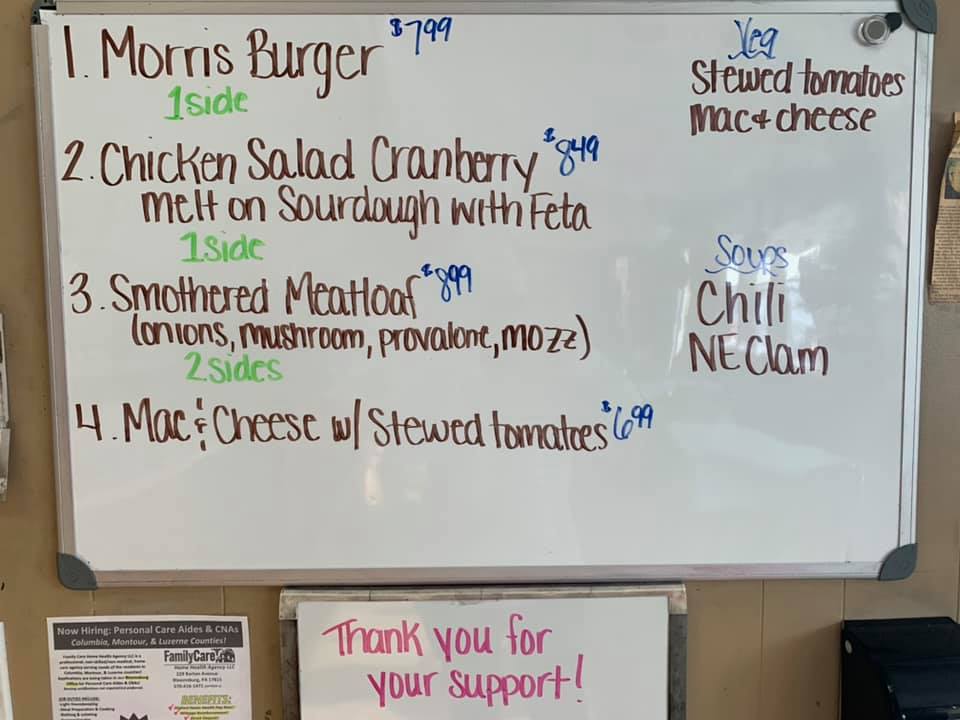 1. Morris Burger $7.99
1 side
2. Chicken Salad Cranberry $8.49
melt on Sourdough with Feta
1 side
3. Smothered Meatloaf $8.99
(onions, mushroom, provalone, mozz)
2 sides
4. Mac & Cheese w/ Stewed tomatoes $6.99
Veg
Stewed tomatoes
Mac & cheese
Soups
Chili
NE Clam
Thank you for
your support!
Now Hiring: Personal Care Aides & CNAs
Columbia, Montour, & Luzerne Counties!
FamilyCare
Home Health Agency LLC
Bloomsburg, PA 17815
BENEFITS: